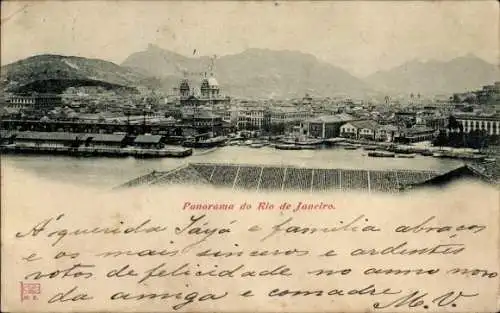 Panorama do Rio de Janeiro.
Á querida Yayá e familia abraços
e os mais sinceros e ardentes
votos de felicidade no anno novo
da amiga e comadre M. V.